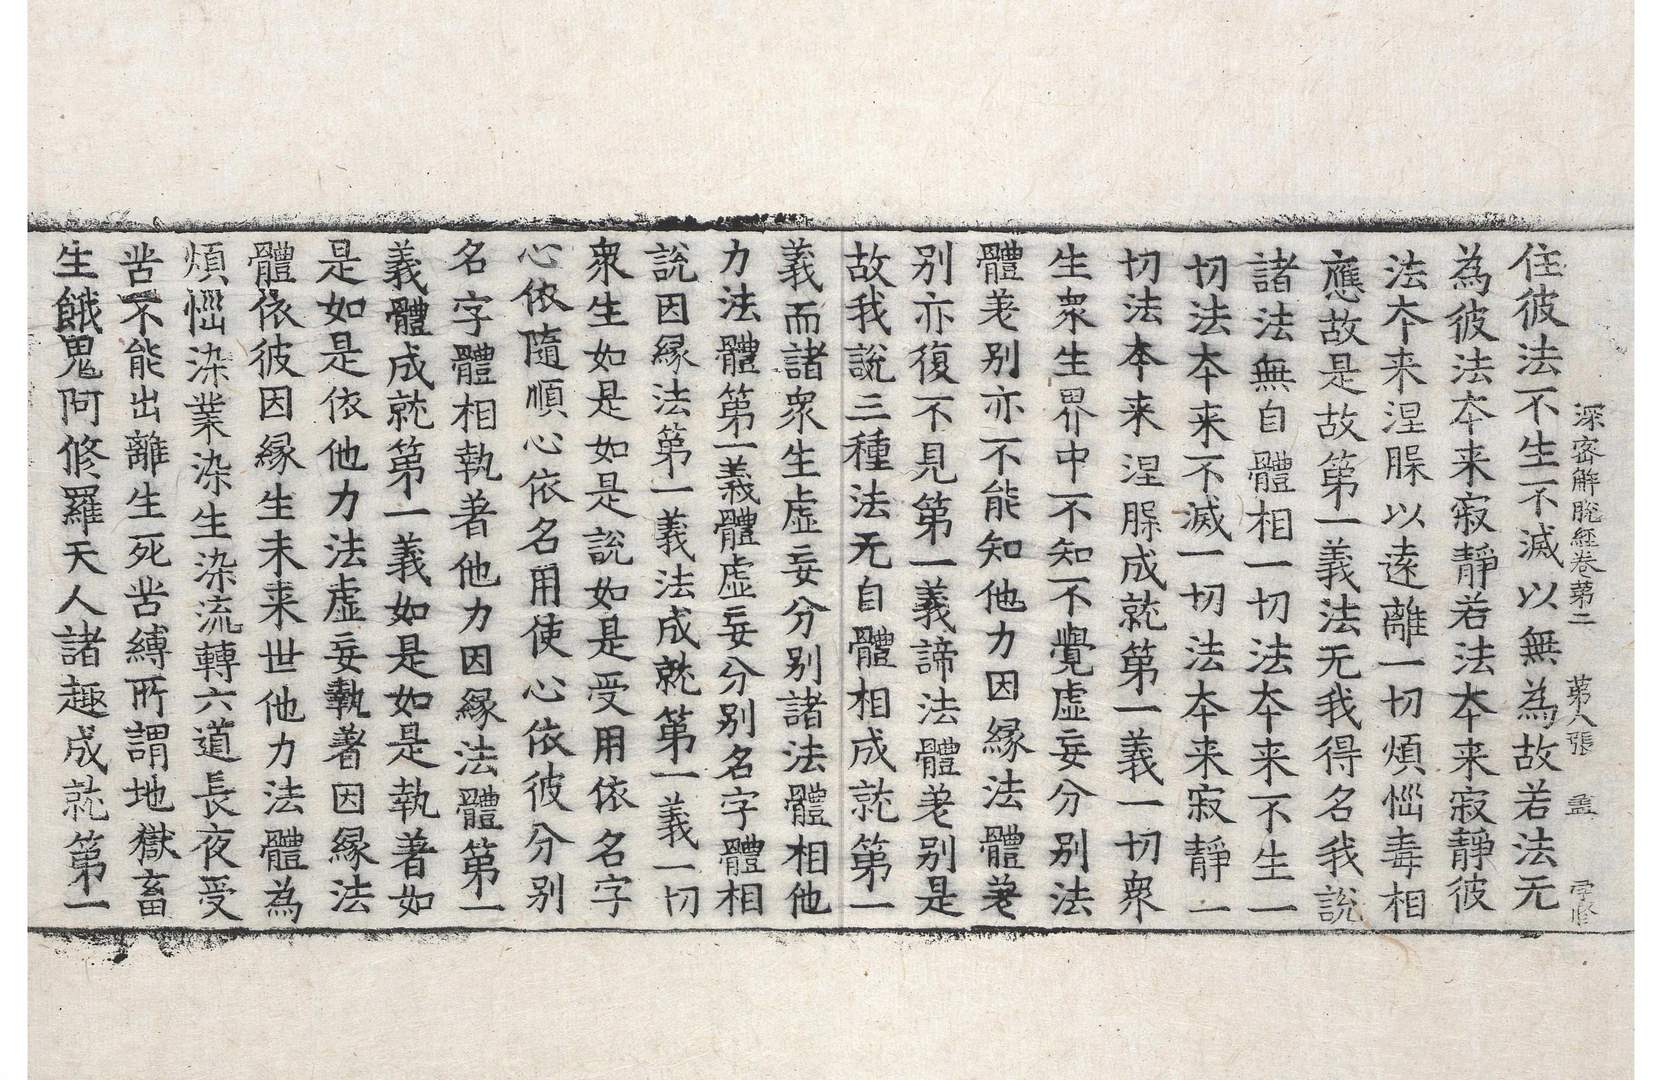 深密解脫經卷第二 第八張 盖 字修
住彼法不生不滅以無為故若法无
為彼法夲来寂靜若法夲来寂靜彼
法夲来涅䐧以逺離一切煩惱毒相
應故是故第一義法无我得名我說
諸法無自體相一切法夲来不生一
切法夲来不滅一切法夲来寂靜一
切法夲来涅䐧成就第一義一切衆
生衆生界中不知不覺虛妄分別法
體差別亦不能知他力因緣法體差
別亦復不見第一義諦法體差別是
故我說三種法无自體相成就第一
義而諸衆生虛妄分別諸法體相他
力法體第一義體虛妄分別名字體相
說因緣法第一義法成就第一義一切
衆生如是如是說如是受用依名字
心依隨順心依名用使心依彼分別
名字體相執著他力因緣法體第一
義體成就第一義如是如是執著如
是如是依他力法虛妄執著因緣法
體依彼因緣生未来世他力法體為
煩惱染業染生染流轉六道長夜受
苦不能出離生死苦縛所謂地獄畜
生餓鬼阿修羅天人諸趣成就第一